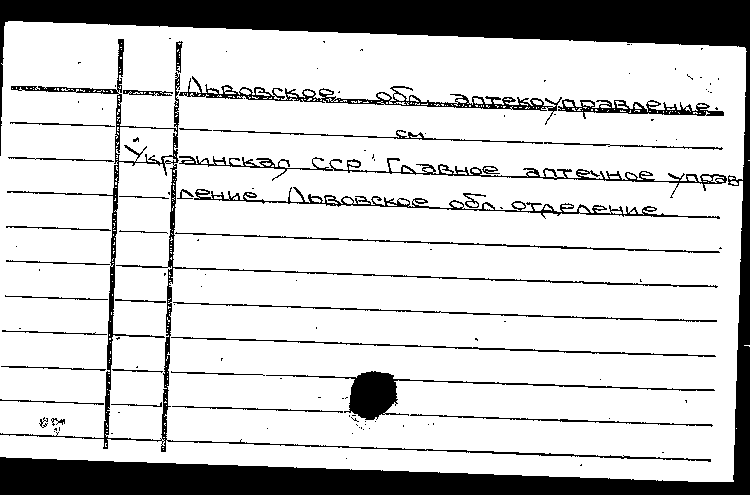 Львовское обл. аптекоуправление.
см.
Украинская ССР. Главное аптечное управ-
ление. Львовское обл. отделение.